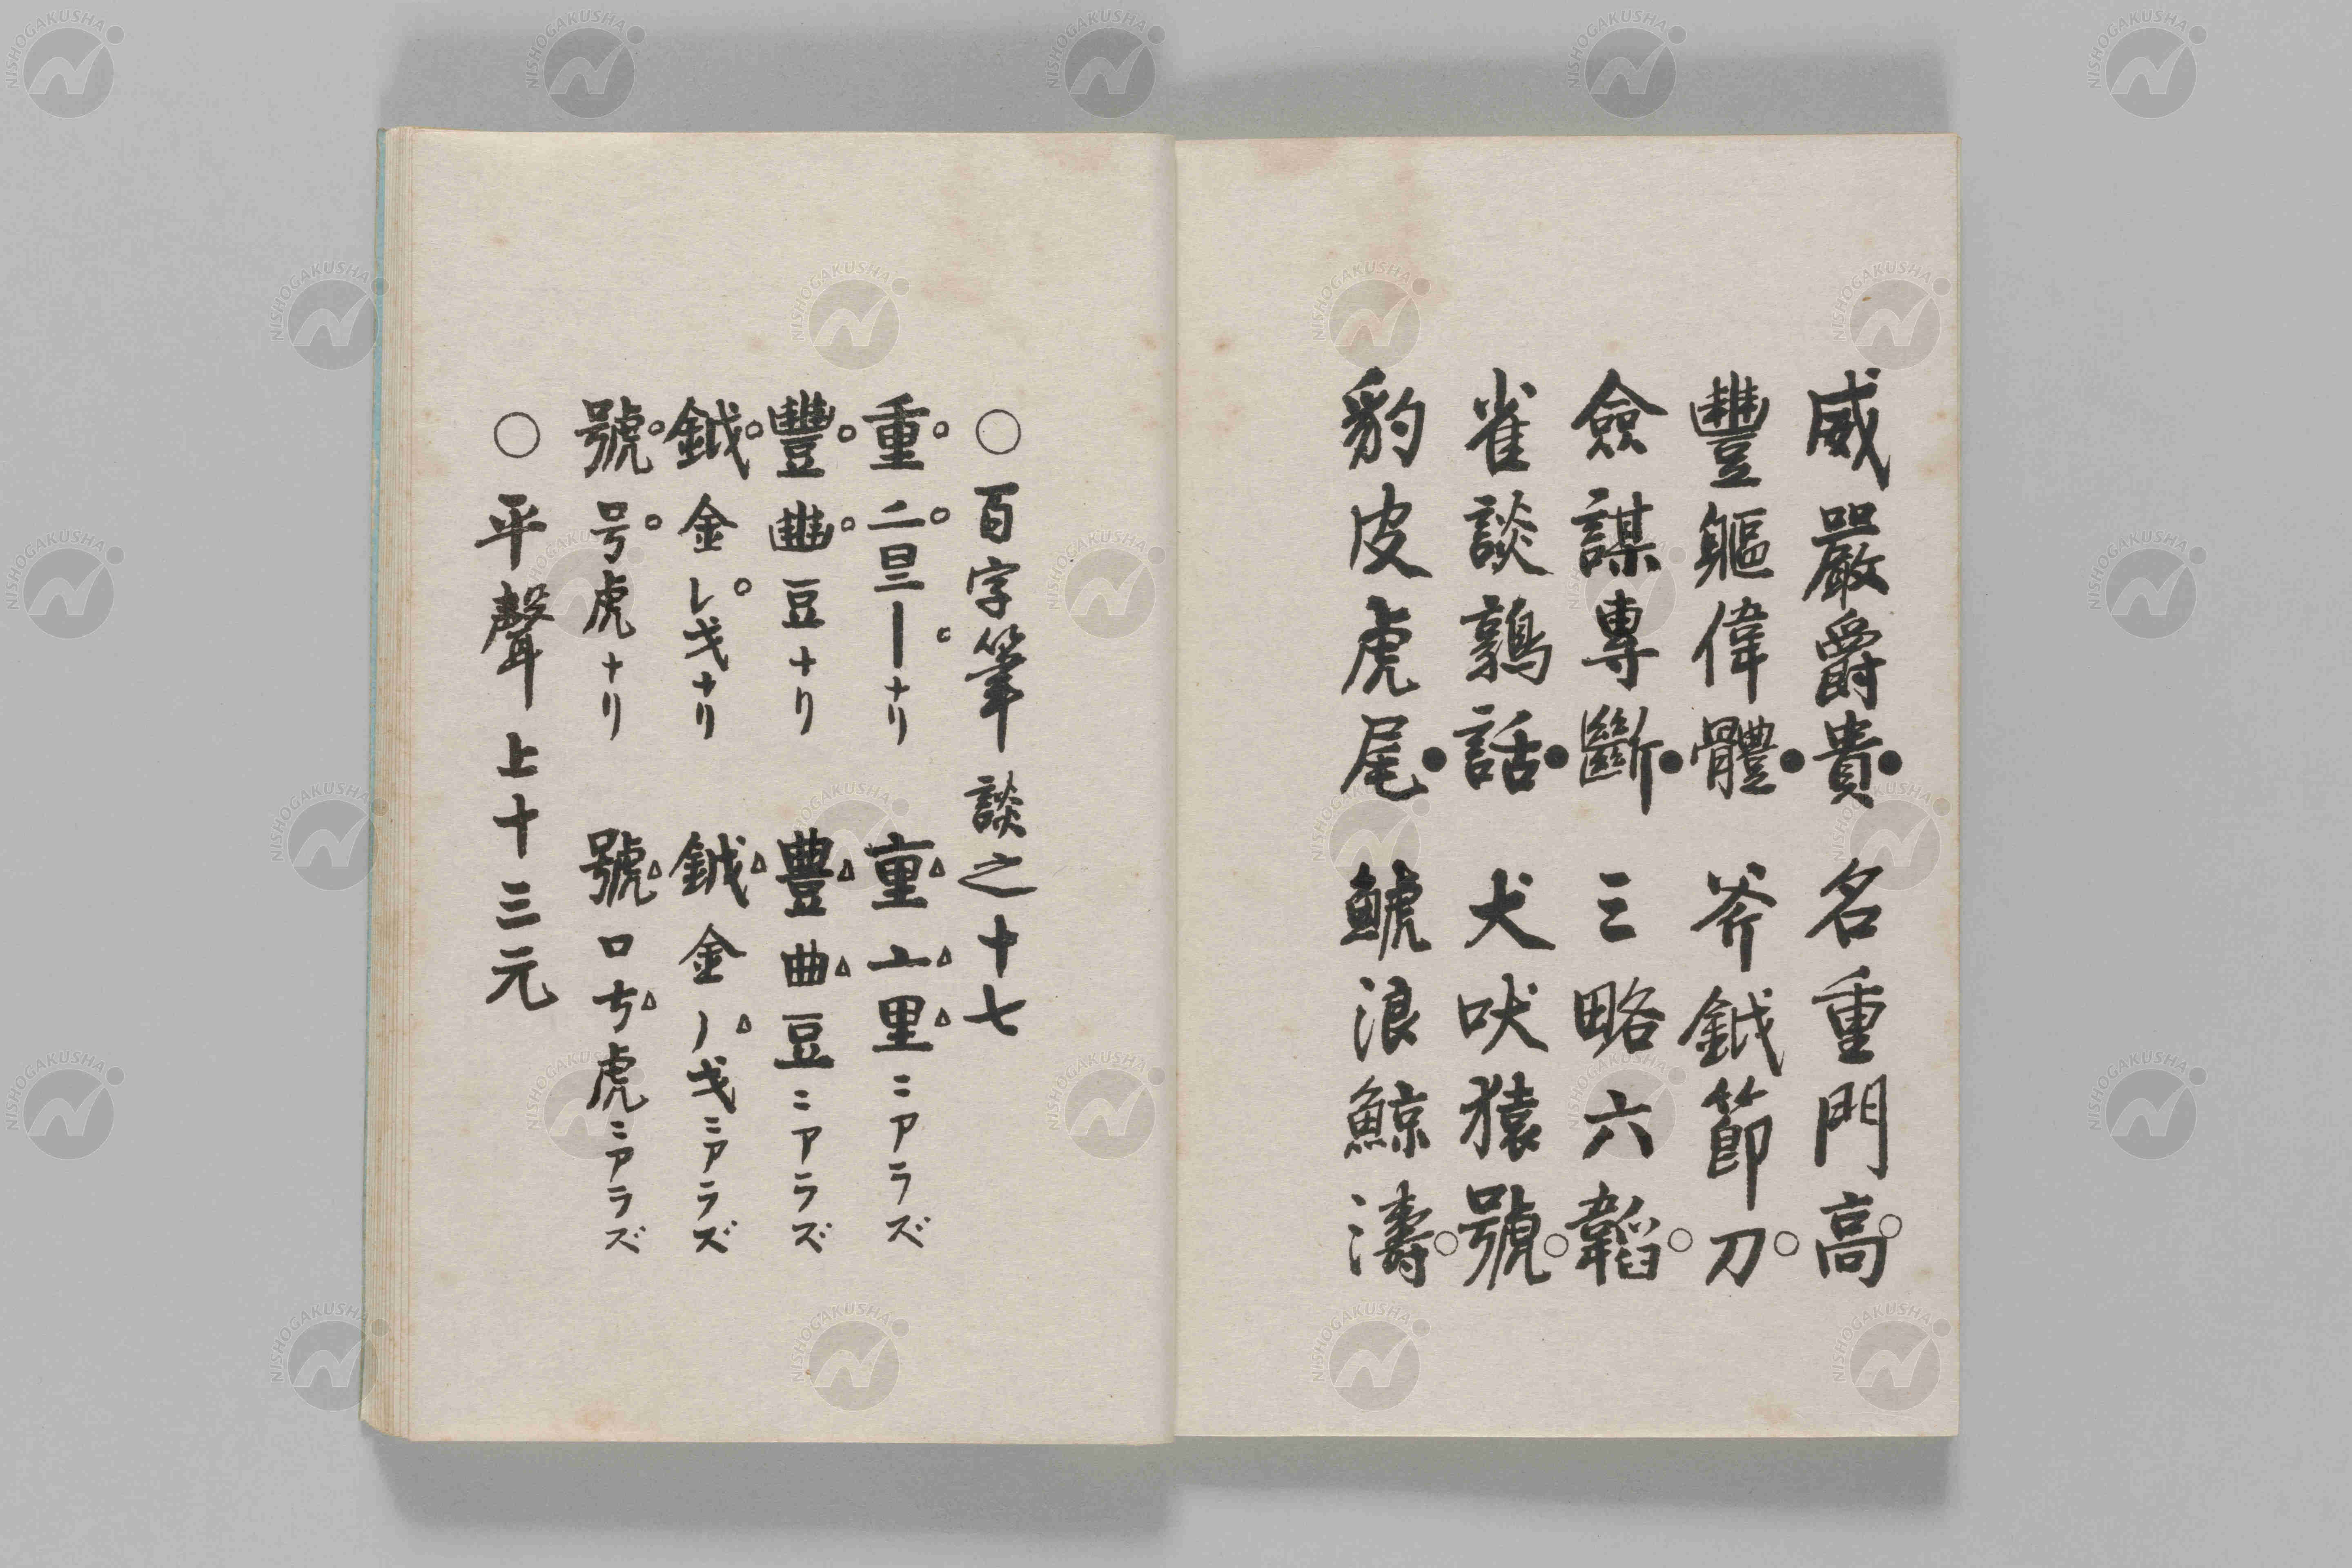 威嚴爵貴●名重門高○
豐軀偉體●斧鉞節刀○
僉謀專斷●三略六韜○
雀談鶉話●犬吠猿號○
豹皮虎尾●鯱浪鯨濤○
○百字筆談之十七
重 二𠀎ーナリ 重 亠里ニアラズ
豐 豆ナリ 豊 曲豆ニアラズ
鉞 金レ戈ナリ 鉞 金ノ戈ニアラズ
號 号虎ナリ 號 口丂虎ニアラズ
○平聲上十三元
NISHOGAKUSHA